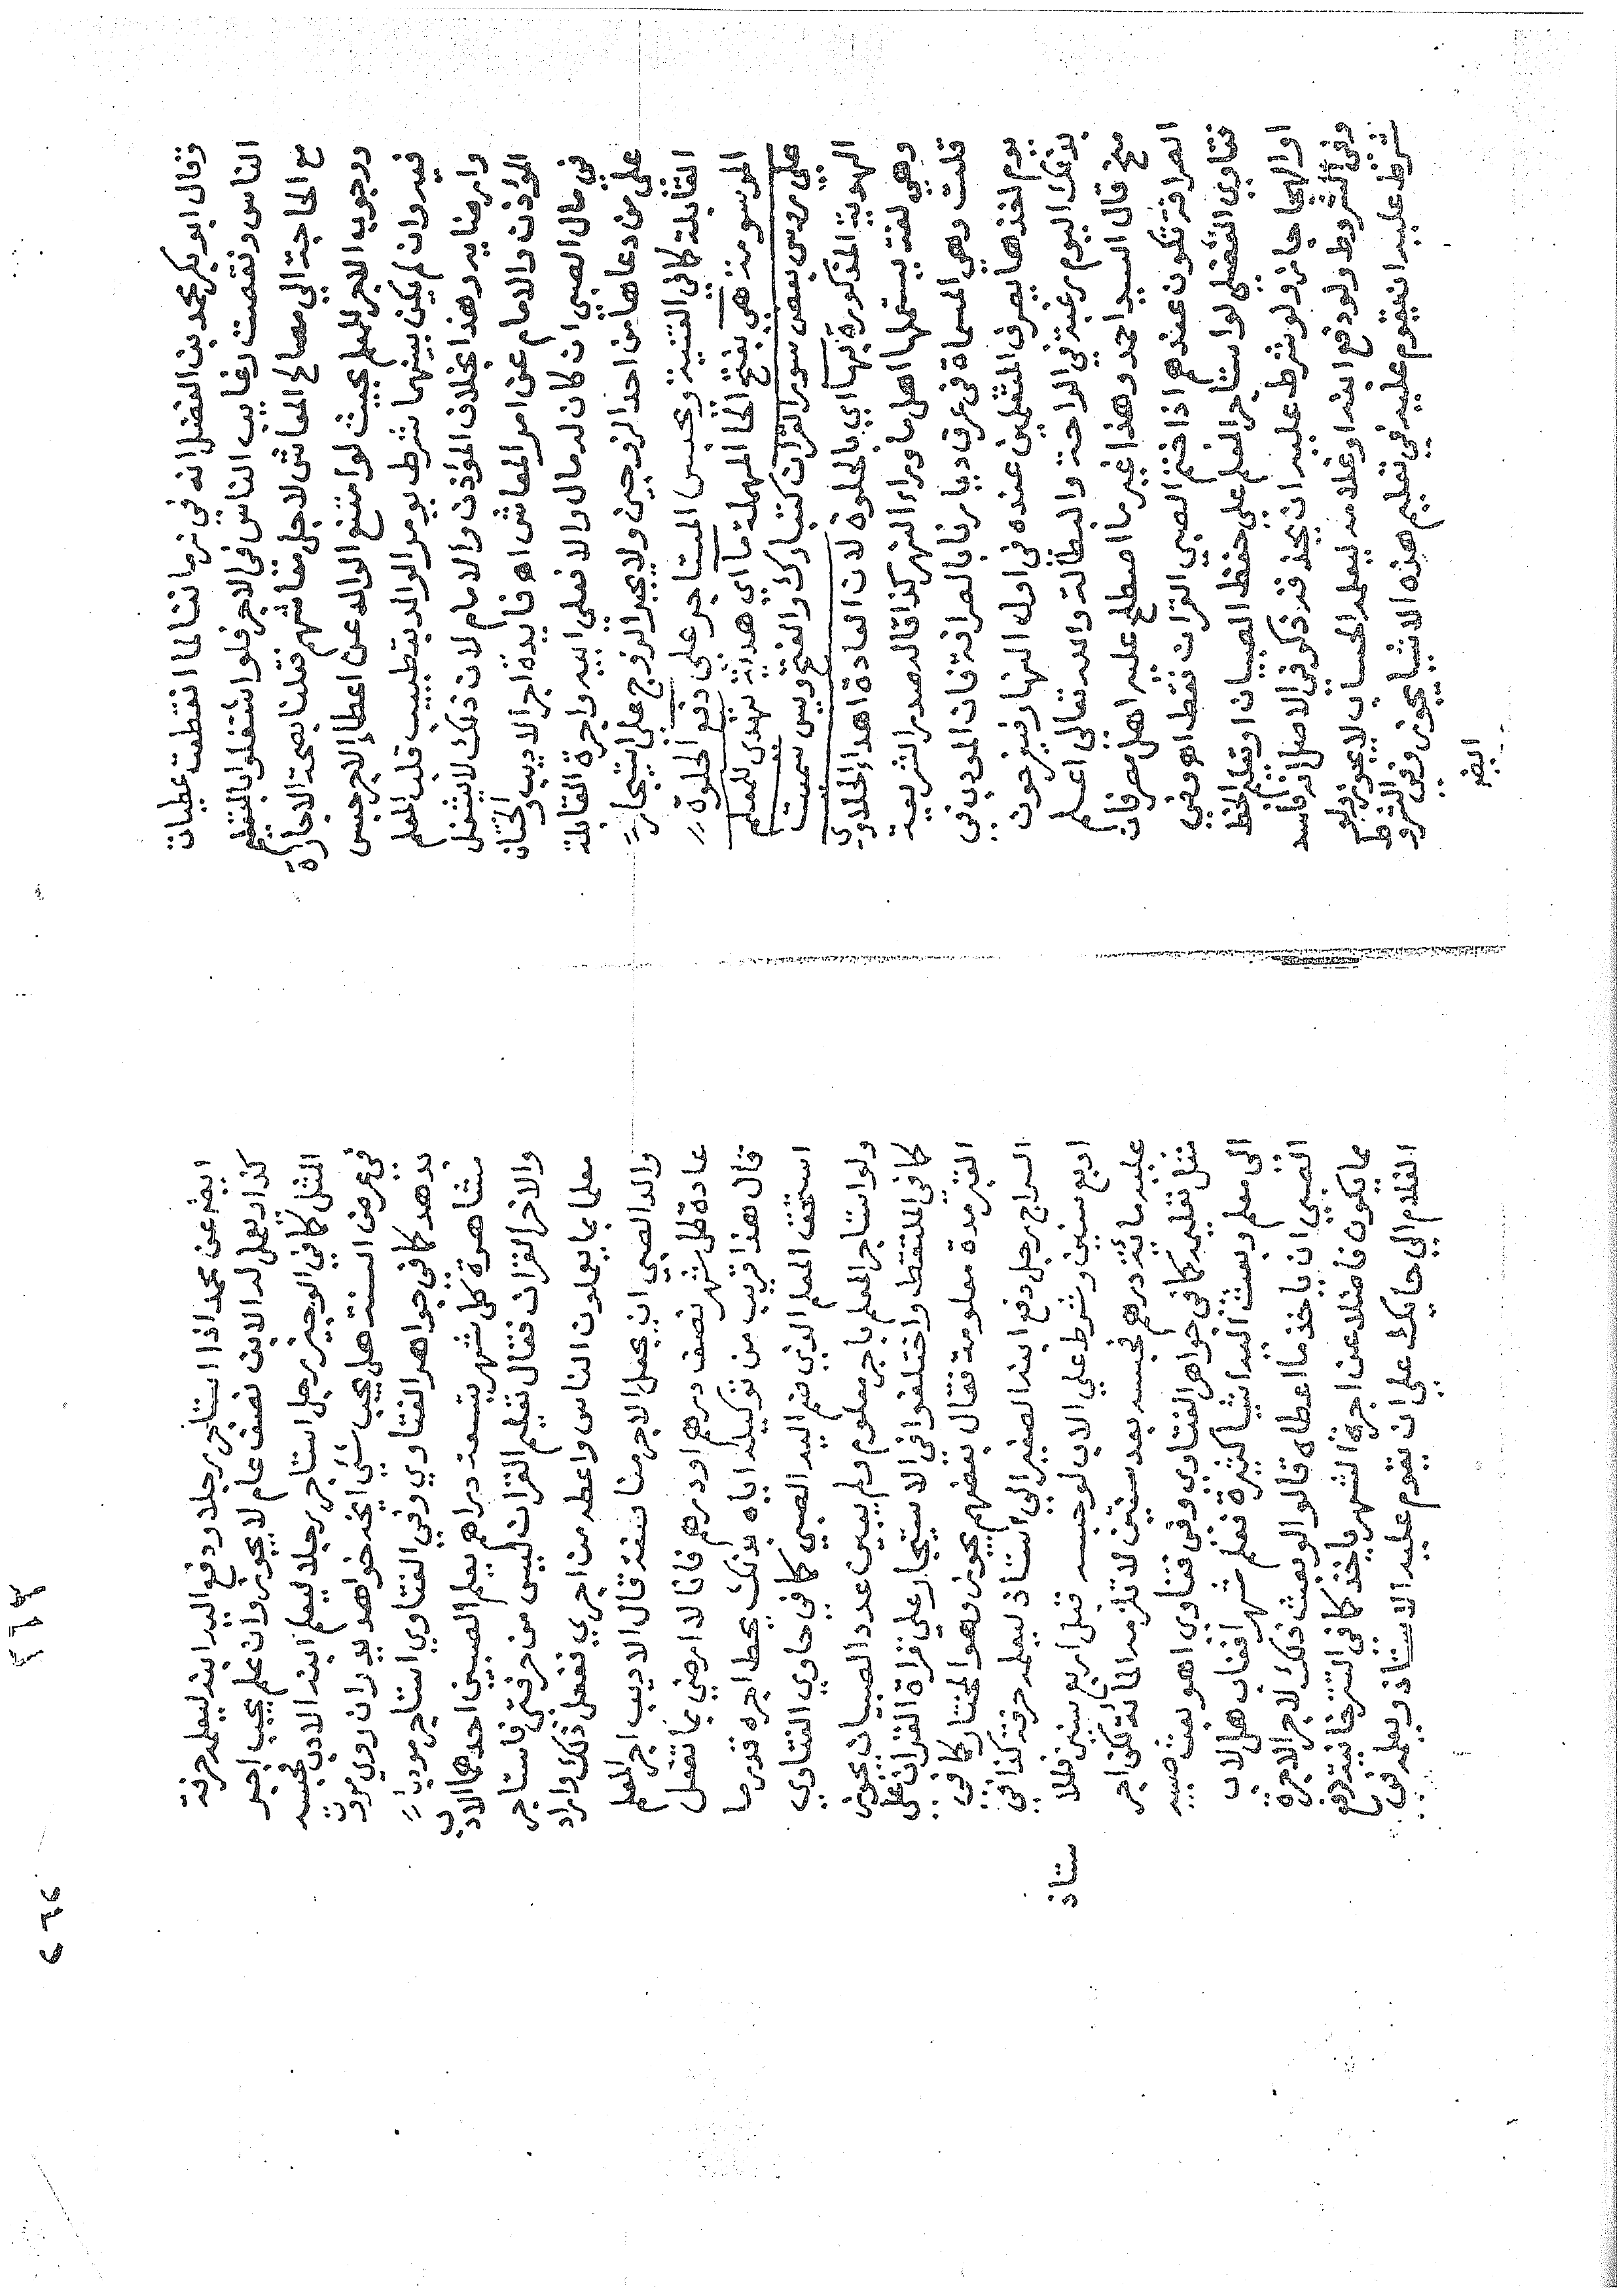 وقال ابو بكر محمد بن الفضل انه في زماننا لما انقطعت عطيات
الناس ونقصت رغايب الناس في الاجر فلو اشتغلوا بالتعليم
مع الحاجة الي مصالح المعاش لاختل معاشهم فقلنا بصحة الاجارة
ووجوب الاجر للمعلم بحيث لو امتنع الوالد عن اعطا الاجر حبس
فيه وان لم يكن بينهما شرط يومر الوالد بتطييب قلب المعلم
وارضايه وهذا بخلاف المؤذن والامام لان ذلك لايشغل
المؤذن والامام عن امر المعاش اه فايدة اجر الاديب والختان
في مال الصبي ان كان له مال والا فعلي ابيه واجرة القابلة
علي من دعاها من احد الزوجين ولا يجبر الزوج علي استيجار
القابلة كما في القنية ويحبس المستاجر علي دفع الحلوة
المرسومة هي بفتح الحا المهملة ما اي هدية تهدى للمعلم
علي رؤس بعض سور القران كتبارك والفتح ويس سميت
الهدية المذكورة بها اي بالحلوة لان العادة اهداء الحلاوي
وهي لغة يستعملها اهل ما وراء النهر كذا قاله صدر الشريعة
قلت وهي المسماة في عرف ديارنا بالصرافة فان المودب في
يوم اخذها يصرف المتعلمين عنده في اول النهار فيفرحون
بذلك اليوم رغبة في الراحة والبطالة والله تعالي اعلم
منح قال السيد احمد وهذا غير ما اصطلح عليه اهل مصر فان
الصرافة تكون عندهم اذا ختم الصبي القران فقط اه وفي
فتاوي الفضلي لو استاجر المعلم علي حفظ الصبيان او تعليم الخط
او الهجا جاز ولو شرط عليه ان يحذقه ذكر في الاصل انه فاسد
وفي الشروط ولو دفع ابنه او غلامه ليعلمه الحساب لا يجوز ولو
شرط عليه ان يقوم عليه في تعليم هذه الاشيا يجوز وفي الشروط
ايضا
ايضا عن محمد اذا استاجر رجلا ودفع اليه ابنه ليعلمه حرفة
كذا ويعمل له الابن نصف عام لا يجوز وان علم يجب اجر
المثل كما في الوجيز رجل استاجر رجلا ليعلم ابنه الادب فحبسه
في عرض السنة هل يجب شئي
بدهد كما في جواهر الفتاوي وفي الفتاوي استاجر مودبا
مشاهرة كل شهر بتسعة دراهم يعلم الصبيين احدهما الادب
والاخر القران فقال تعليم القران ليس من حرفتي فاستاجر
معلما بما يعملون الناس واعطه من اجري ففعل ذلك واراد
والد الصبي ان يجعل الاجر مناصفة قال الاديب اجر المعلم
عادة كل شهر نصف درهم او درهم فانا لا ارضي بما تفعل
قال هذا قريب من توكيله اياه بذلك يحط اجره قدر ما
استحق المعلم الذي ضم اليه الصبي كما في حاوي الفتاوي
ولو استاجر المعلم باجر معلوم ولم يبين عدد الصبيان يجوز
كما في الملتقط واختلفوا في الاستيجار علي قراة القران علي
القبر مدة معلومة فقال بعضهم يجوز وهو المختار كما في
السراج رجل دفع ابنه الصغير الي استاذ ليعلمه حرفة كذا في
اربع سنين وشرط علي الاب لو حبسه قبل اربع سنين فللا
ستاذ
عليه مائة درهم فحبسه بعد سنتين لا تلزمه المائة لكن اجر
مثل تعليمه كما في جواهر الفتاوي وفي فتاوي اهو بعث صبيه
الي معلم وبعث اليه اشيا كثيرة فعلم شهرا فغاب هل لاب
الصبي ان ياخذ ما اعطاه قالوا لو بعث ذلك لاجر الاجرة
مما يكون فاضلا عن اجرة الشهر ياخذ كما في التترخانية دفع
الغلام الي حايك علي ان يقوم عليه الاستاذ ويعلمه في
٢٦٢